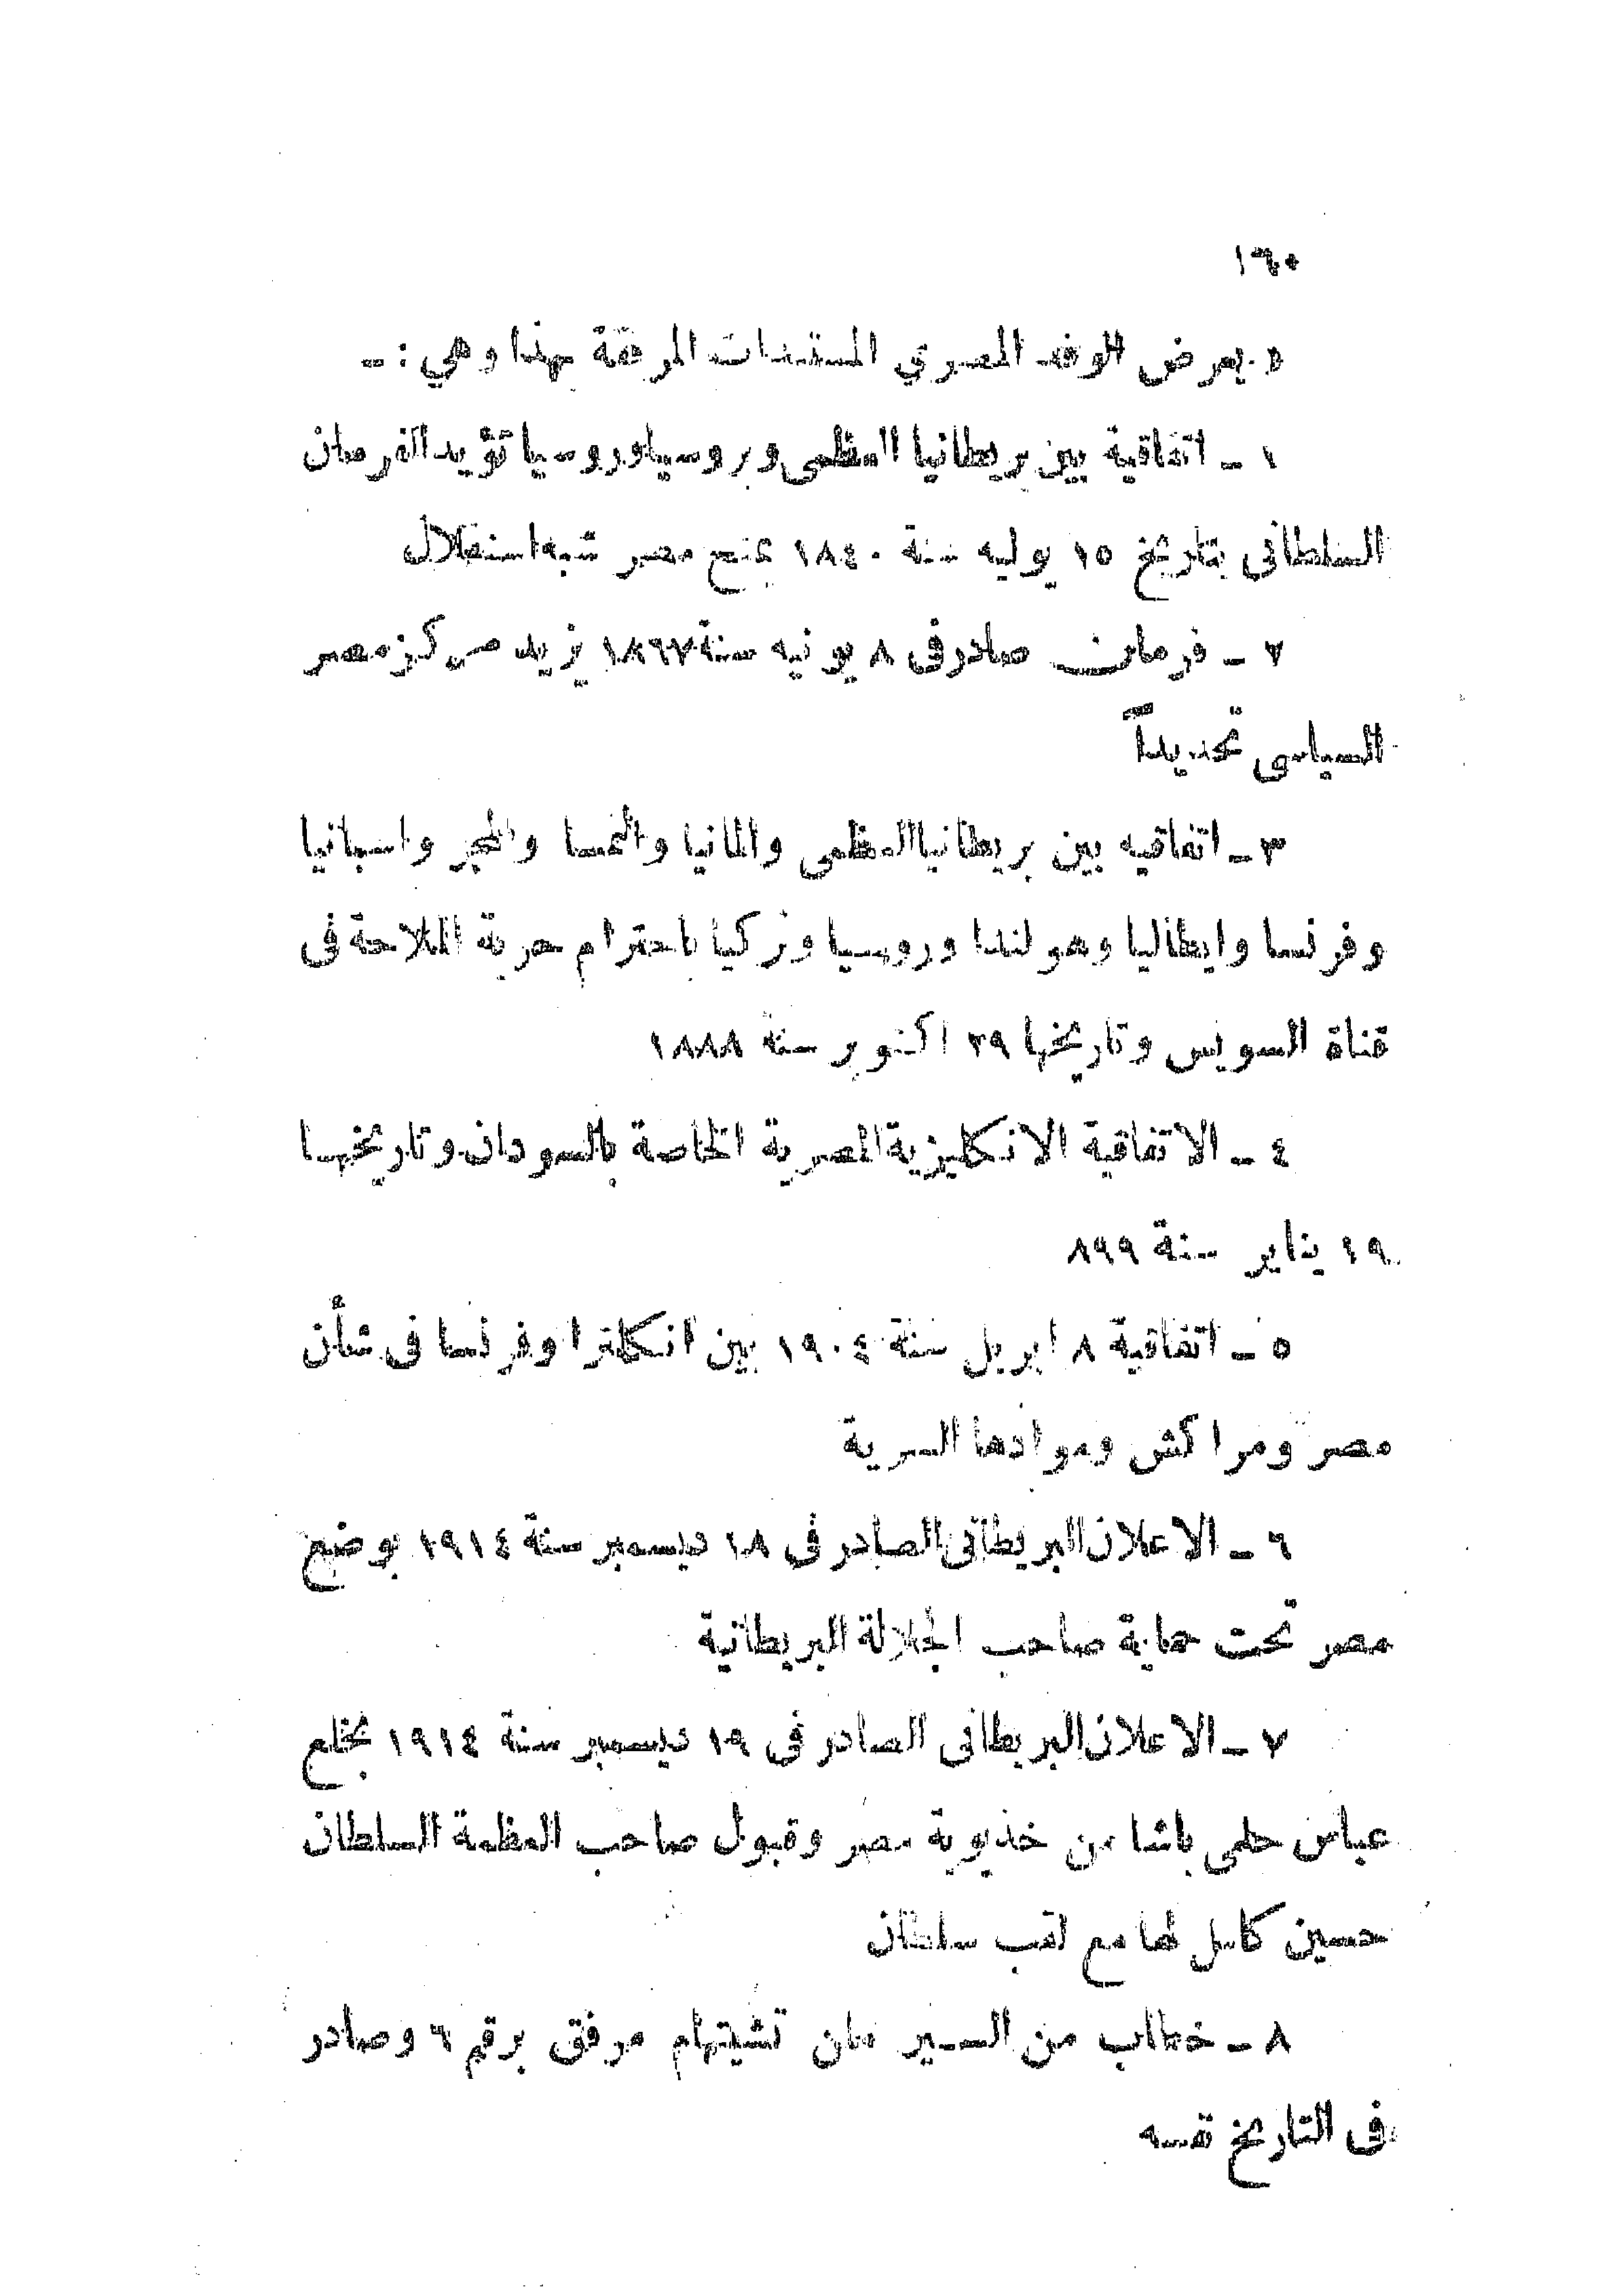 ١٦٠
٥. يعرض الوفد المصري المستندات المرفقة بهذا وهي : -
١ - اتفاقية بين بريطانيا العظمى وبروسيا وروسيا تؤيد الفرمان
السلطانى بتاريخ ١٥ يوليه سنة ١٨٤٠ بمنح مصر شبه استقلال
٢ - فرمان صادر فى ٨ يونيه سنة ١٨٦٧ يزيد مركز مصر
السياسى تحديداً
٣ - اتفاقيه بين بريطانيا العظمى والمانيا والنمسا والمجر واسبانيا
وفرنسا وايطاليا وهولندا وروسيا وتركيا باحترام حرية الملاحة فى
قناة السويس وتاريخها ٢٩ اكتوبر سنة ١٨٨٨
٤ - الاتفاقية الانكليزية المصرية الخاصة بالسودان وتاريخها
١٩ يناير سنة ٨٩٩
٥ - اتفاقية ٨ ابريل سنة ١٩٠٤ بين انكلترا وفرنسا فى شأن
مصر ومراكش وموادها السرية
٦ - الاعلان البريطانى الصادر فى ١٨ ديسمبر سنة ١٩١٤ بوضع
مصر تحت حماية صاحب الجلالة البريطانية
٧ - الاعلان البريطانى الصادر فى ١٩ ديسمبر سنة ١٩١٤ بخلع
عباس حلمى باشا من خديوية مصر وقبول صاحب العظمة السلطان
حسين كامل لها مع لقب سلطان
٨ - خطاب من السير ملن تشيتهام مرفق برقم ٦ وصادر
فى التاريخ نفسه